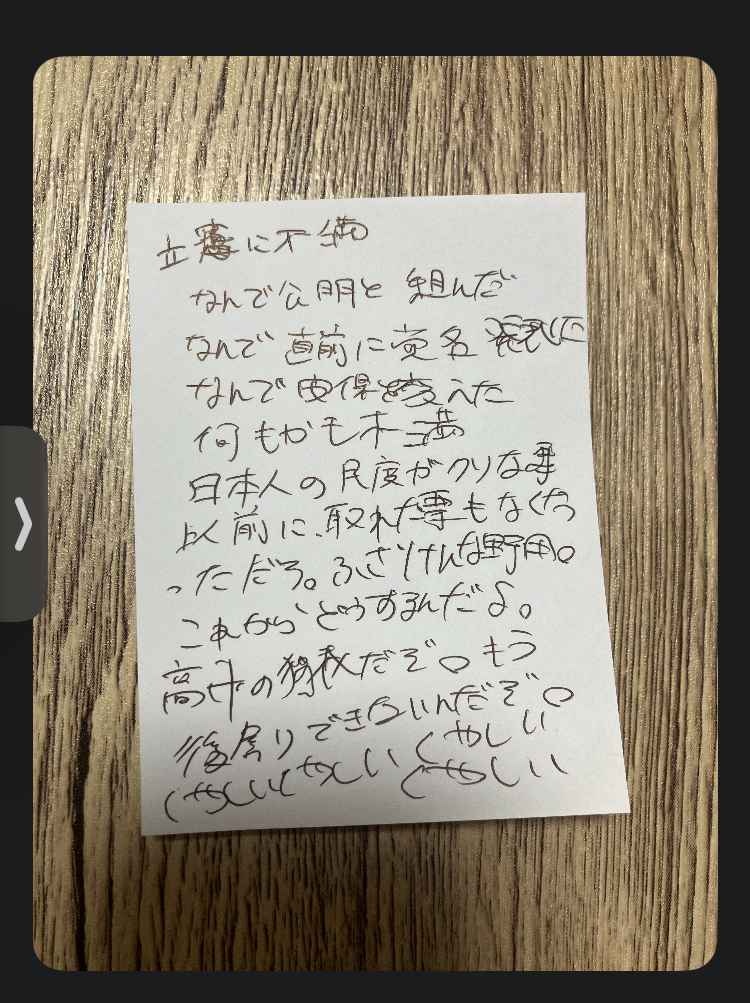 立憲に不満
なんで公明と組んだ
なんで直前に党名
なんで安保を変えた
何もかも不満
日本人の民度がクソな事
以前に、取れた事もなくなっ
っただろ。ふざけんな野田。
これからどうするんだよ。
高市の独裁だぞ。もう
後戻りできないんだぞ。
くやしいくやしいくやしい
くやしい